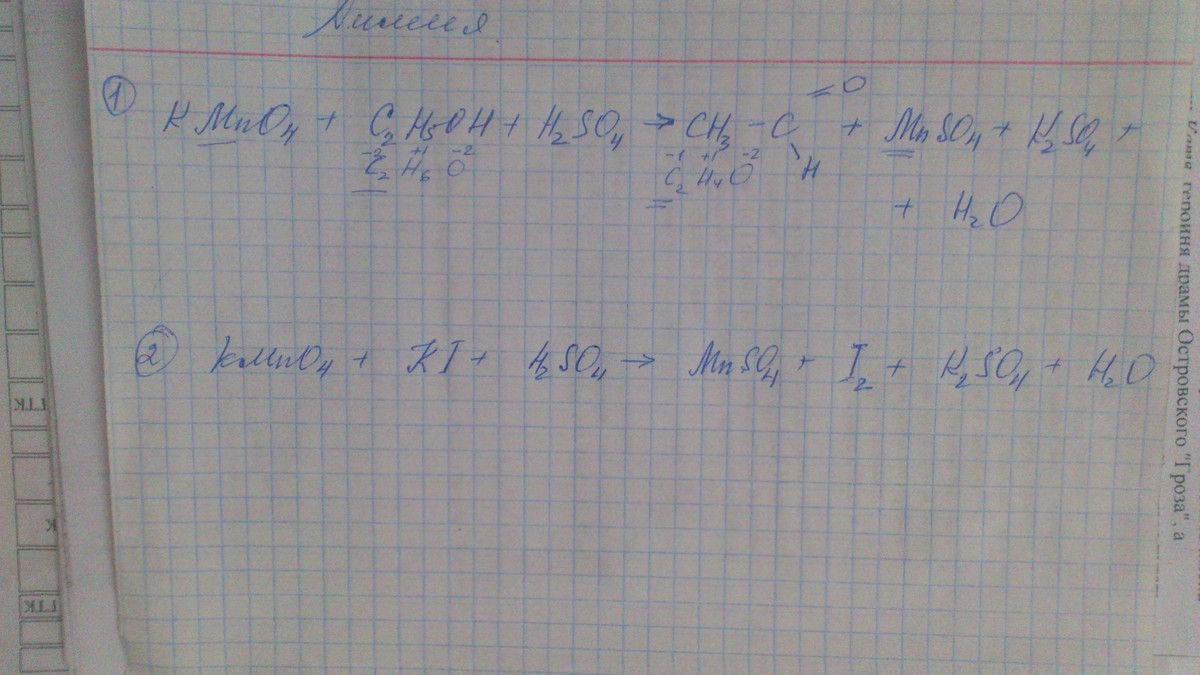 Химия.
① KMnO₄ + C₂H₅OH + H₂SO₄ → CH₃ – C =O \ H + MnSO₄ + K₂SO₄ +
C₂⁻² H₆⁺¹ O⁻² C₂⁻¹ H₄⁺¹ O⁻²
+ H₂O
② KMnO₄ + KI + H₂SO₄ → MnSO₄ + I₂ + K₂SO₄ + H₂O
героиня драмы Островского "Гроза", а
ГТК
К
ГТК